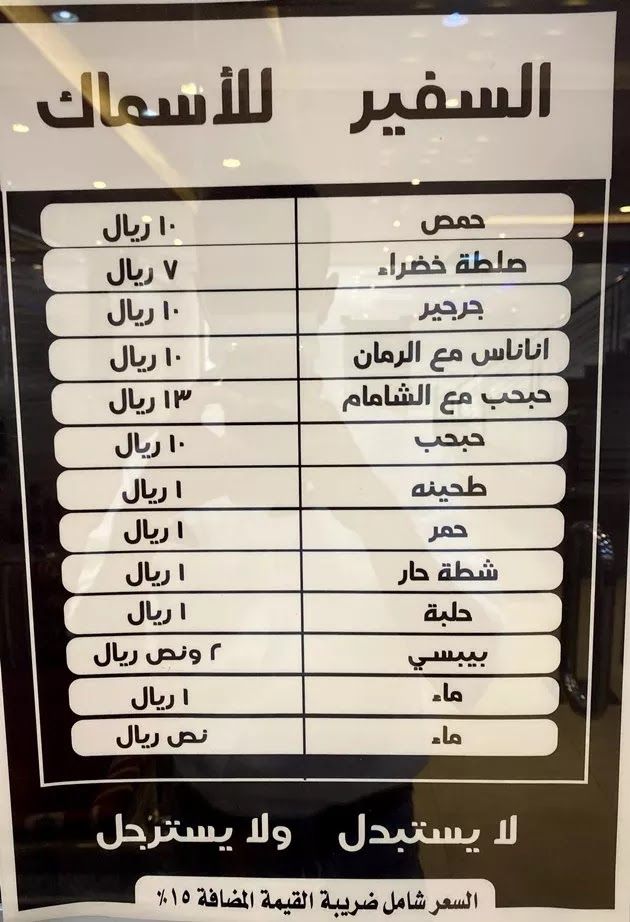 السفير للأسماك
حمص ١٠ ريال
صلطة خضراء ٧ ريال
جرجير ١٠ ريال
اناناس مع الرمان ١٠ ريال
حبحب مع الشامام ١٣ ريال
حبحب ١٠ ريال
طحينه ١ ريال
حمر ١ ريال
شطة حار ١ ريال
حلبة ١ ريال
بيبسي ٢ ونص ريال
ماء ١ ريال
ماء نص ريال
لا يستبدل ولا يسترجل
السعر شامل ضريبة القيمة المضافة ١٥٪